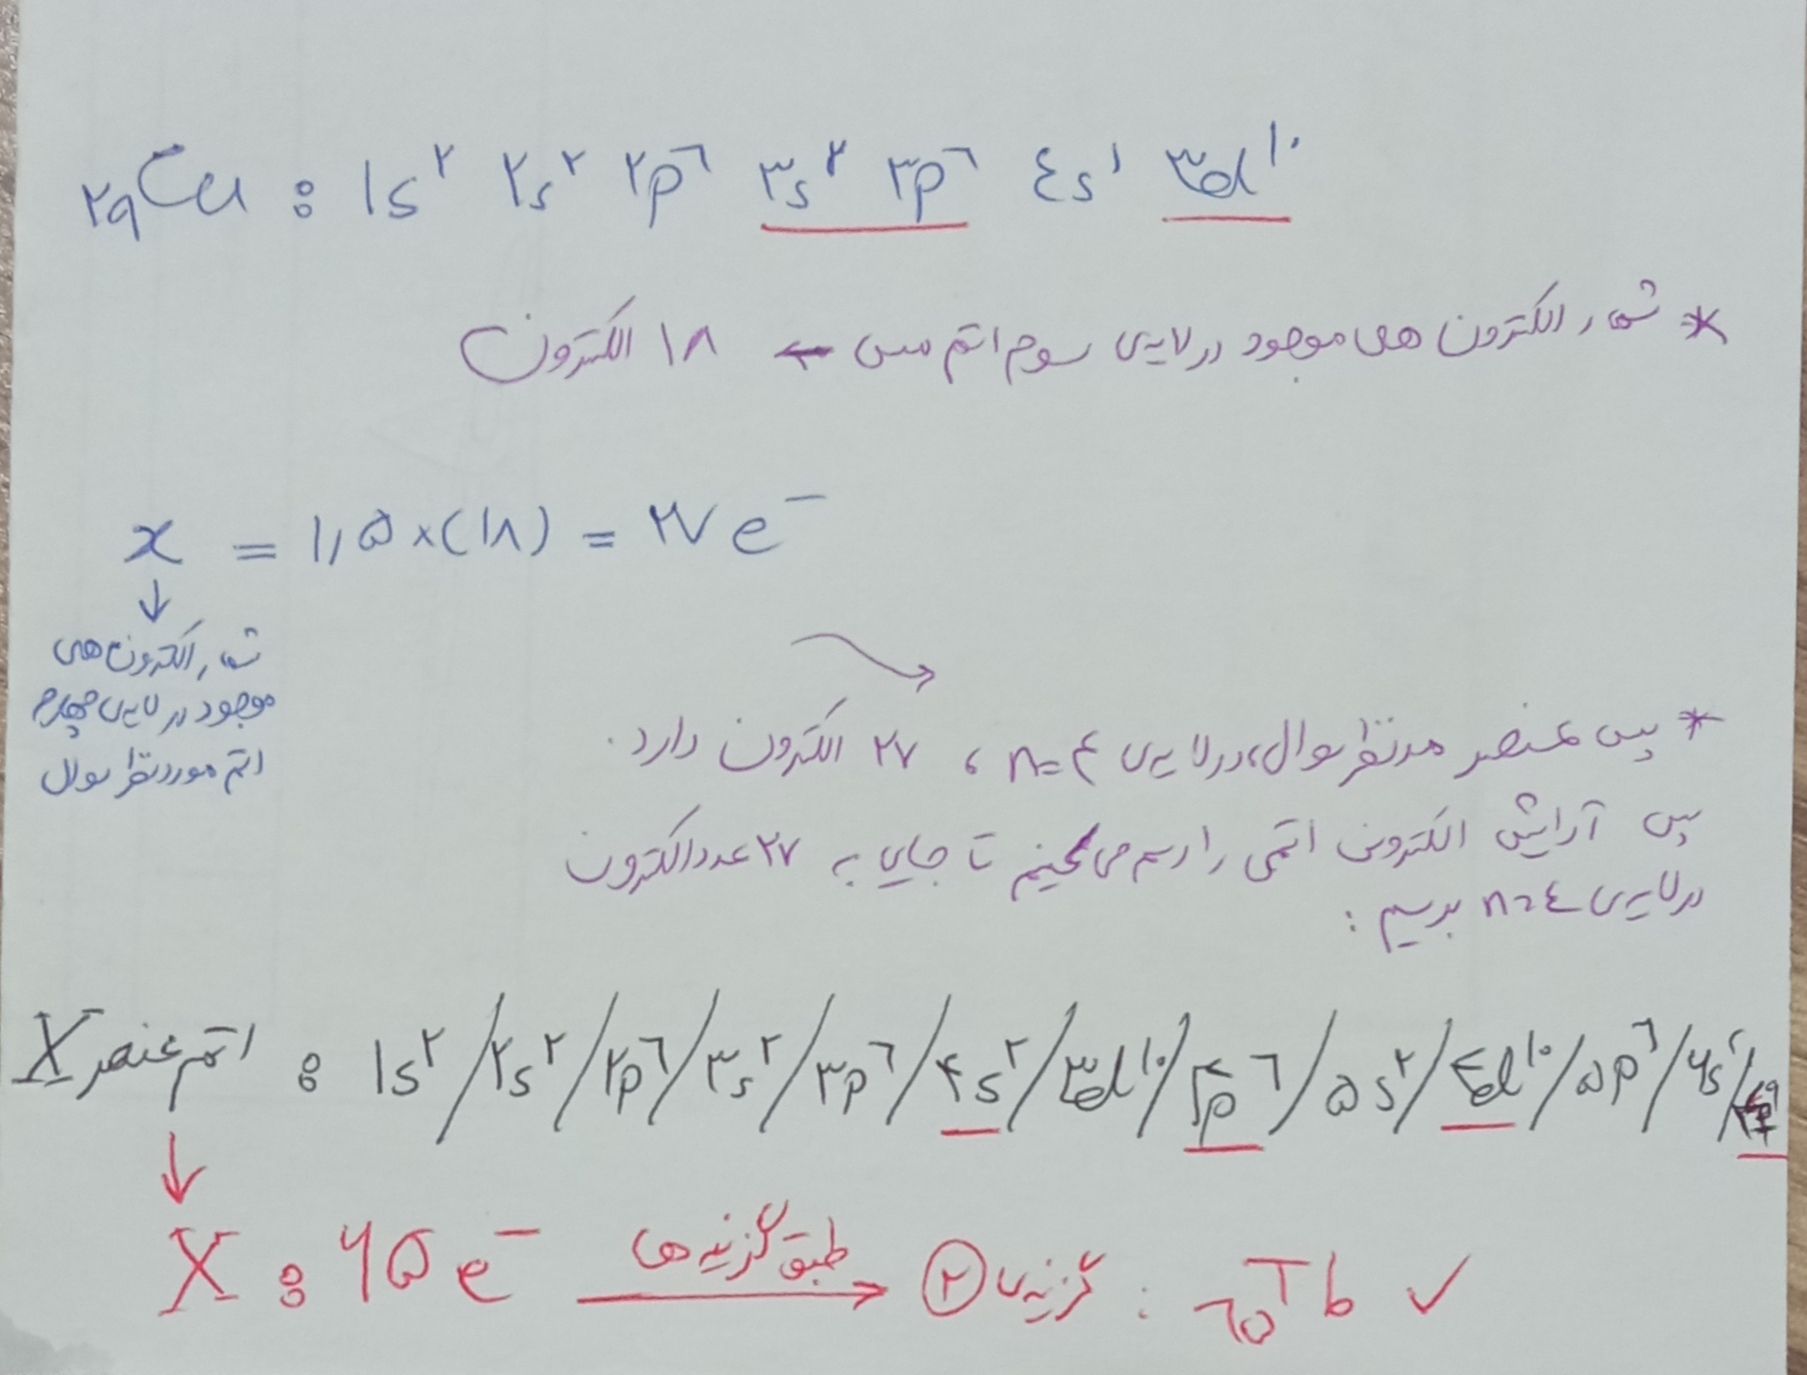 ۲۹Cu : ۱s² ۲s² ۲p⁶ ۳s² ۳p⁶ ٤s¹ ۳d¹⁰
* شمار الکترون های موجود در لایه‌ی سوم اتم مس ← ۱۸ الکترون
x = ۱,۵×(۱۸) = ۲۷ e⁻
↓
شمار الکترون های
موجود در لایه‌ی چهارم
اتم مورد نظر سوال
* پس عنصر مدنظر سوال، در لایه‌ی n=۴ ، ۲۷ الکترون دارد.
پس آرایش الکترونی اتمی را رسم می کنیم تا جایی به ۲۷ عدد الکترون
در لایه‌ی n=٤ برسیم :
اتم عنصر X : ۱s²/۲s²/۲p⁶/۳s²/۳p⁶/۴s²/۳d¹⁰/۴p⁶/۵s²/٤d¹⁰/۵p⁶/۶s²/
↓
X : ۶۵ e⁻ طبق گزینه ها → گزینه‌ی ۲ : ٦۵Tb ✓